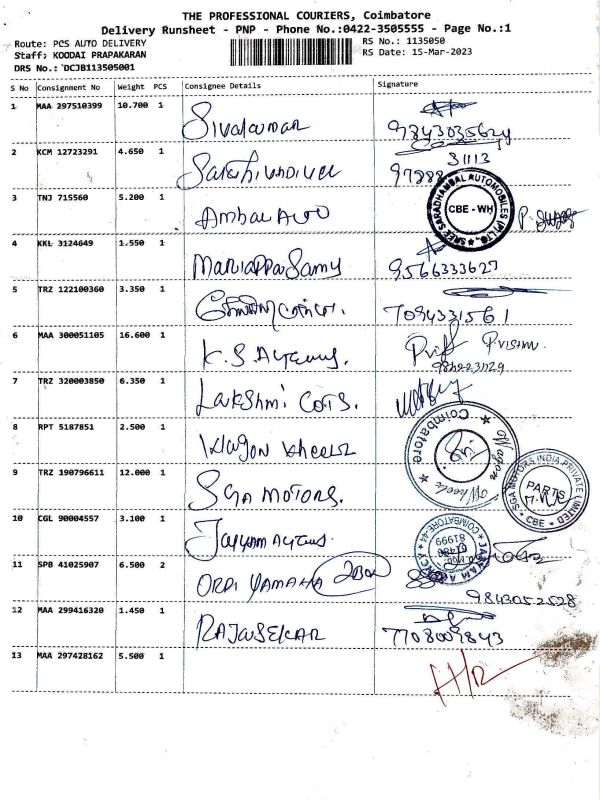 THE PROFESSIONAL COURIERS, Coimbatore
Delivery Runsheet - PNP - Phone No.:0422-3505555 - Page No.:1
Route: PCS AUTO DELIVERY
RS No.: 1135050
Staff: KOODAI PRAPAKARAN
RS Date: 15-Mar-2023
DRS No.: DCJB113505001
S No Consignment No Weight PCS Consignee Details Signature
1 MAA 297510399 10.700 1 Sivakumar
2 KCM 12723291 4.650 1 Sakthivadivel 31113
3 TNJ 715560 5.200 1 Ambal Auto
SREE SARADHAMBAL AUTOMOBILES (P) LTD.
CBE - WH
4 KKL 3124649 1.550 1 Mariappa Samy 9566333627
5 TRZ 122100360 3.350 1 7094331561
6 MAA 300051105 16.600 1 K.S. Agencys.
7 TRZ 320003850 6.350 1 Lakshmi Cots.
8 RPT 5187851 2.500 1 Wagon Wheels
Wagon Wheels Coimbatore
9 TRZ 190796611 12.000 1 SGA MOTORS.
SGA MOTORS INDIA PRIVATE LIMITED
PARTS
CBE
10 CGL 90004557 3.100 1 Jayham Agencys
COIMBATORE-44
81999
11 SPB 41025907 6.500 2 ORPI YAMAHA 2Box
9843052528
12 MAA 299416320 1.450 1 RAJASEKAR 7708009843
13 MAA 297428162 5.500 1